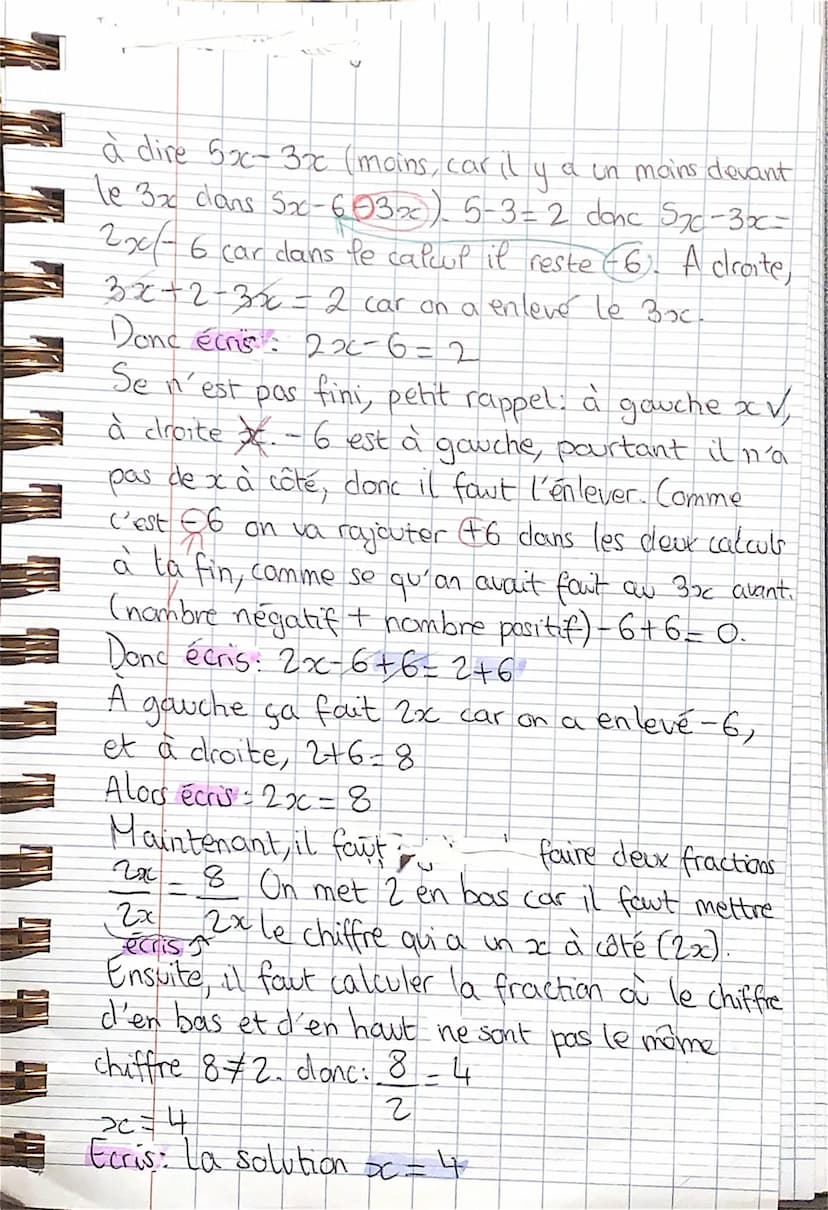 à dire 5x-3x (moins, car il y a un moins devant
le 3x dans 5x-6-3x). 5-3=2 donc 5x-3x=
2x(-6 car dans le calcul il reste -6). A droite,
3x+2-3x = 2 car on a enlevé le 3x.
Donc écris : 2x-6=2
Se n'est pas fini, petit rappel : à gauche x √,
à droite x. -6 est à gauche, pourtant il n'a
pas de x à côté, donc il faut l'enlever. Comme
c'est -6 on va rajouter +6 dans les deux calculs
à la fin, comme se qu'on avait fait au 3x avant.
(nombre négatif + nombre positif) -6+6=0.
Donc écris: 2x-6+6=2+6
À gauche ça fait 2x car on a enlevé -6,
et à droite, 2+6=8
Alors écris : 2x=8
Maintenant, il faut faire deux fractions
2x/2x = 8/2x On met 2 en bas car il faut mettre
le chiffre qui a un x à côté (2x).
écris
Ensuite, il faut calculer la fraction où le chiffre
d'en bas et d'en haut ne sont pas le même
chiffre 8≠2. donc: 8/2 = 4
x=4
Ecris: La solution x=4